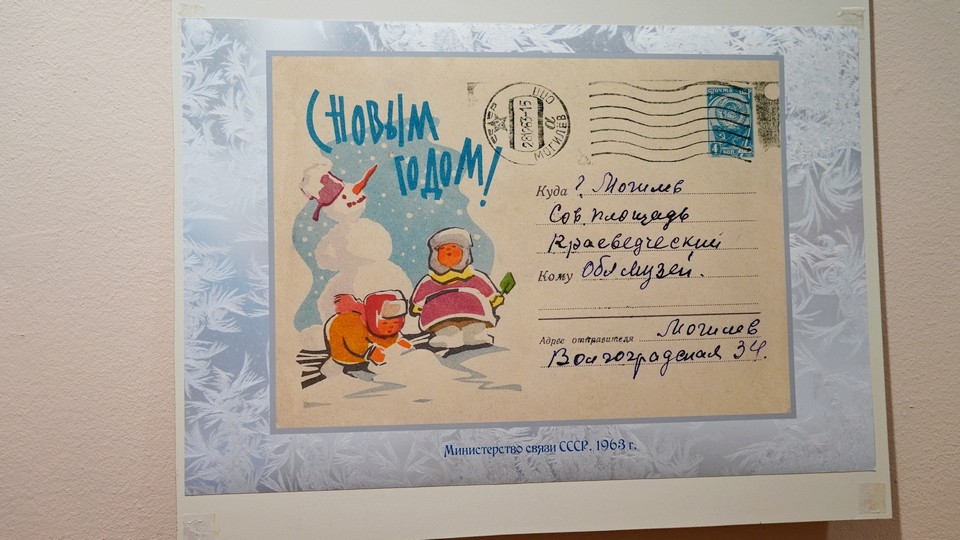 С НОВЫМ
ГОДОМ!
МОГИЛЁВ
ПОЧТА
4
Куда ? Могилев
Сов. площадь
Краеведческий
Кому Обл музей.
Адрес отправителя Могилев
Волгоградская 34.
Министерство связи СССР. 1963 г.